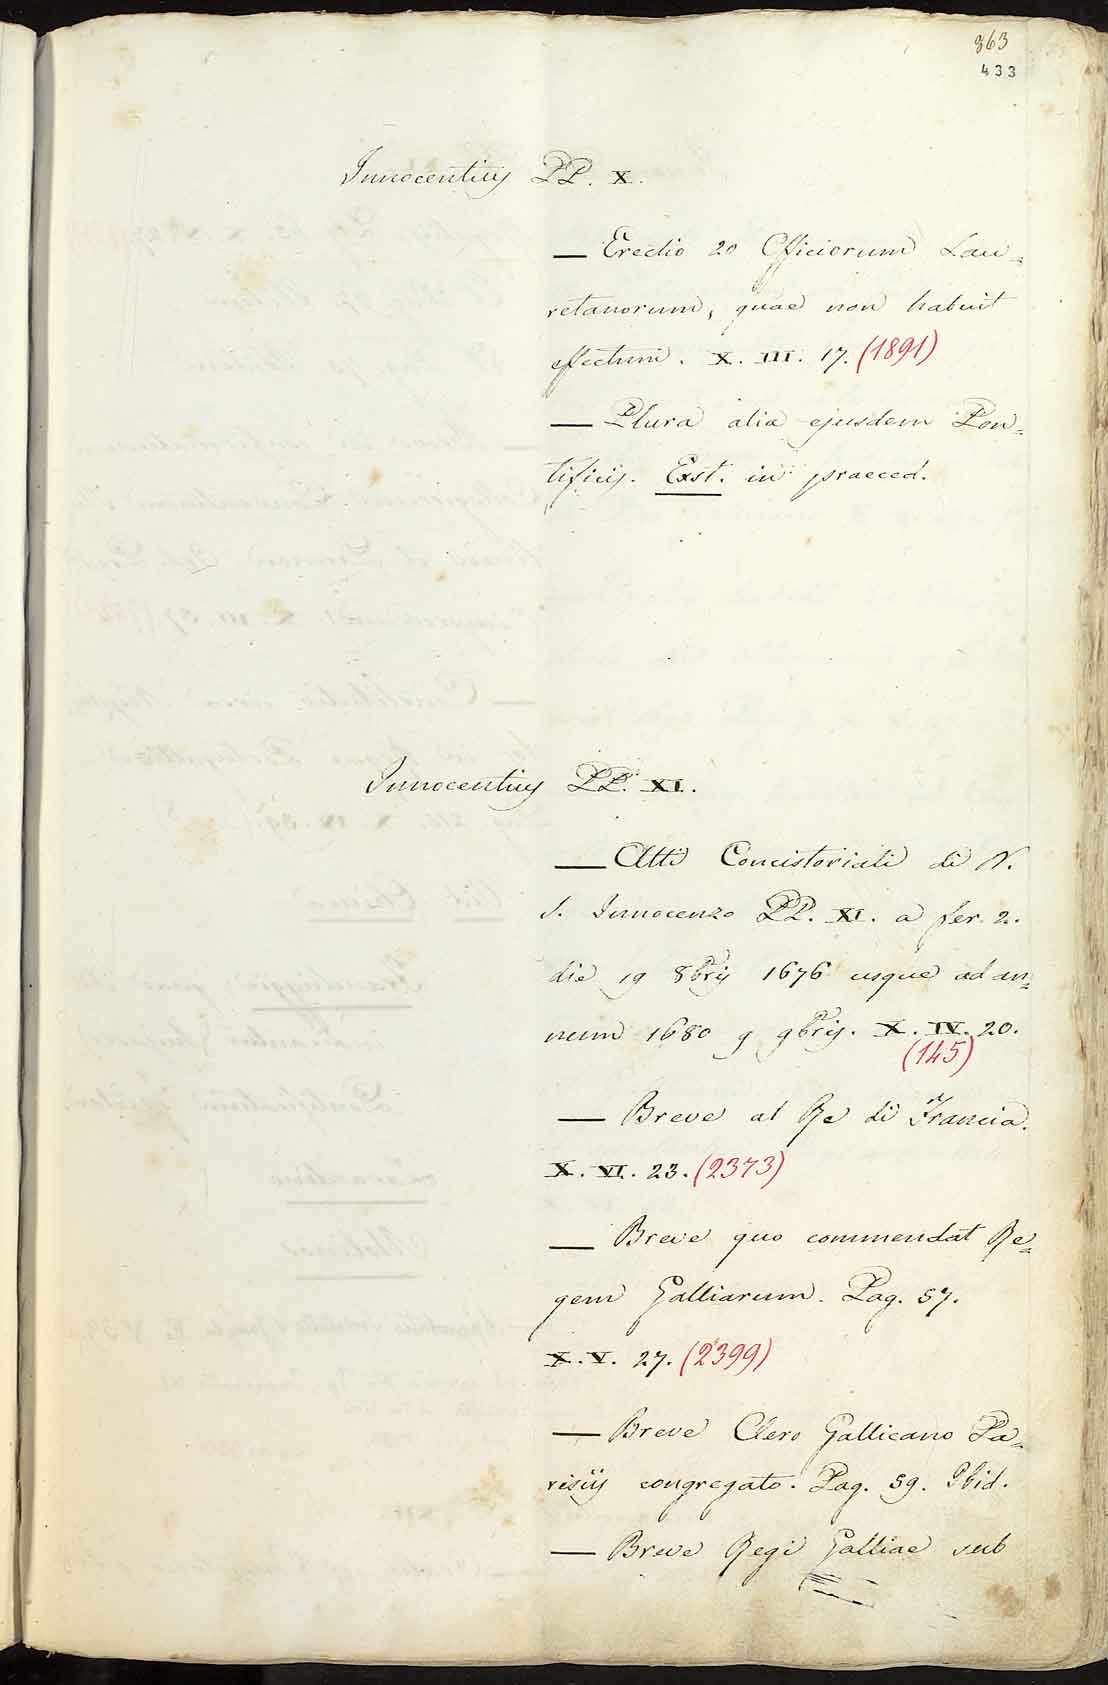 363
433
Innocentius PP. X.
— Erectio 20 Officiorum Lau=
retanorum, quae non habuit
effectum. X. III. 17. (1891)
— Plura alia ejusdem Pon=
tificis. Exst. in praeced.
Innocentius PP. XI.
— Atti Concistoriali di N.
S. Innocenzo PP. XI. a fer. 2.
die 19 8bris 1676 usque ad an=
num 1680 9 9bris. X. IV. 20.
(145)
— Breve al Re di Francia.
X. VI. 23. (2373)
— Breve quo commendat Re=
gem Galliarum. Pag. 57.
X. V. 27. (2399)
— Breve Clero Gallicano Pa=
risiis congregato. Pag. 59. Ibid.
— Breve Regi Galliae sub